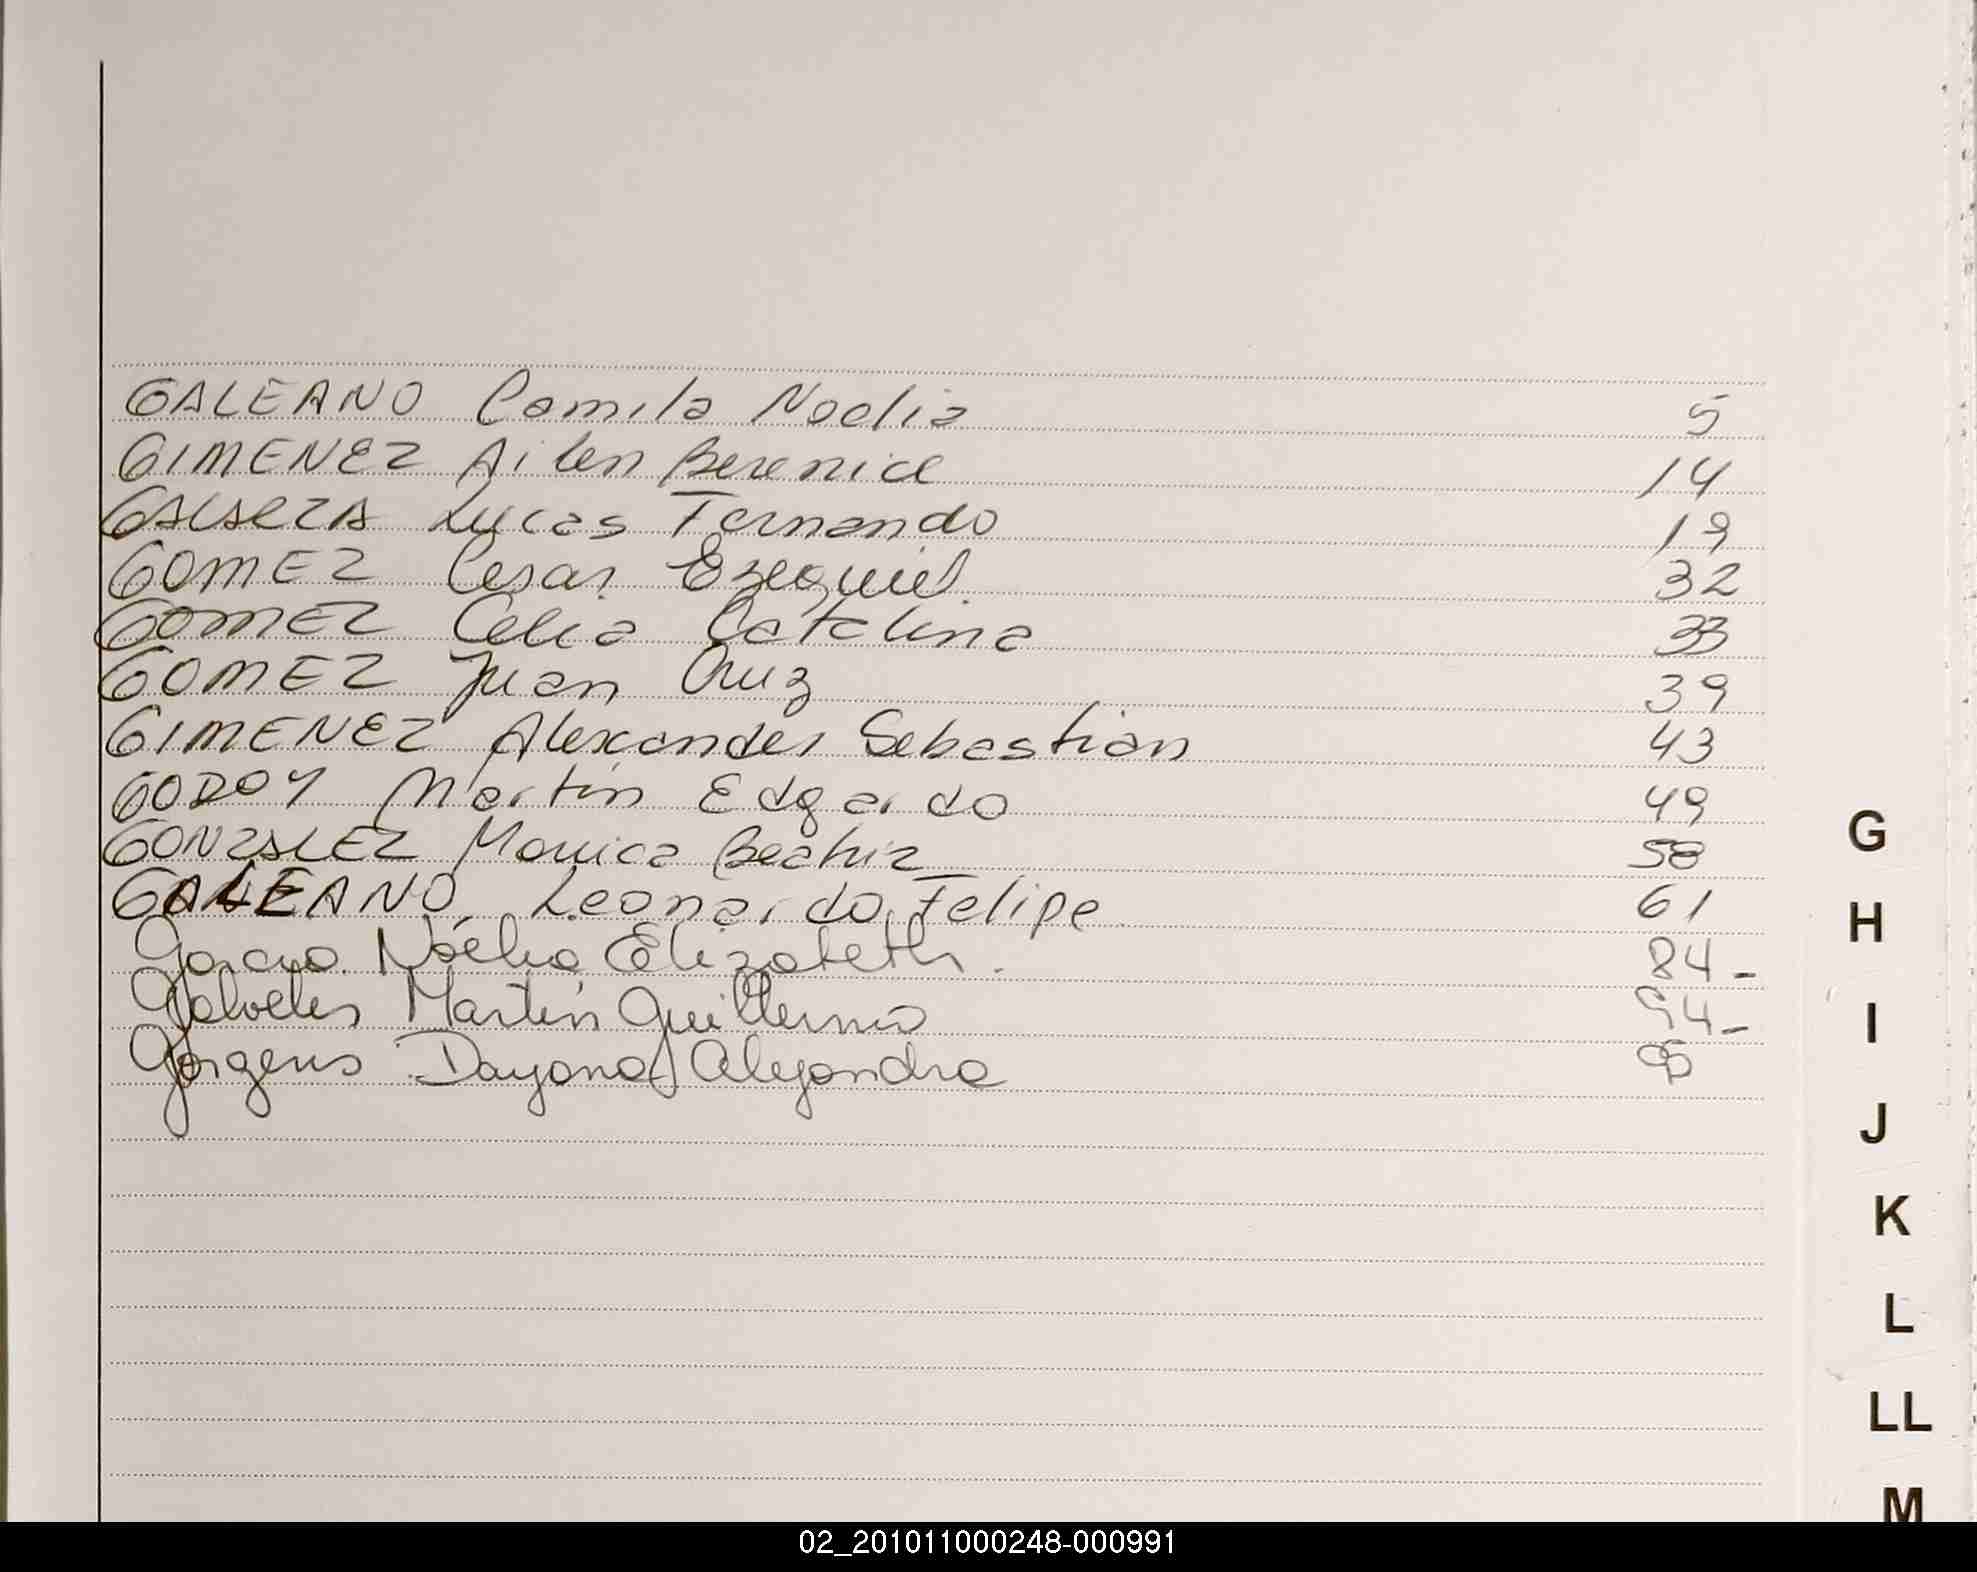 GALEANO Camila Noelia 5
GIMENEZ Ailen Berenice 14
GALARZA Lucas Fernando 19
GOMEZ Cesar Ezequiel. 32
GOMEZ Celia Catalina 33
GOMEZ Juan Cruz 39
GIMENEZ Alexander Sebastian 43
GODOY Martin Edgardo 49
GONZALEZ Monica Beatriz 58
GALEANO Leonardo Felipe 61
Garcia Noelia Elizabeth. 84-
Martin Guillermo 94-
Dayana Alejandra 95
G
H
I
J
K
L
LL
M
02_201011000248-000991